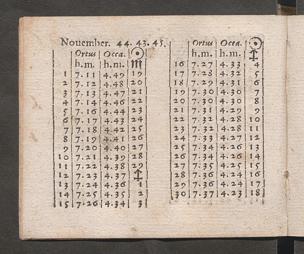 November. 44. 43. 45.
Ortus Occa. ☉
h.m. h.m. ♏
1 7.11 4.49 19
2 7.12 4.48 20
3 7.13 4.47 21
4 7.14 4.46 22
5 7.16 4.44 23
6 7.17 4.43 24
7 7.18 4.42 25
8 7.19 4.41 26
9 7.20 4.40 27
10 7.21 4.39 28
11 7.22 4.38 29
12 7.23 4.37 ♐
13 7.24 4.36 1
14 7.25 4.35 2
15 7.26 4.34 3
Ortus Occa. ☉
h.m. h.m. ♐
16 7.27 4.33 4
17 7.28 4.32 5
18 7.29 4.31 6
19 7.30 4.30 7
20 7.30 4.30 8
21 7.31 4.29 9
22 7.32 4.28 10
23 7.32 4.28 11
24 7.33 4.27 12
25 7.34 4.26 13
26 7.34 4.26 14
27 7.35 4.25 15
28 7.36 4.24 16
29 7.36 4.24 17
30 7.37 4.23 18